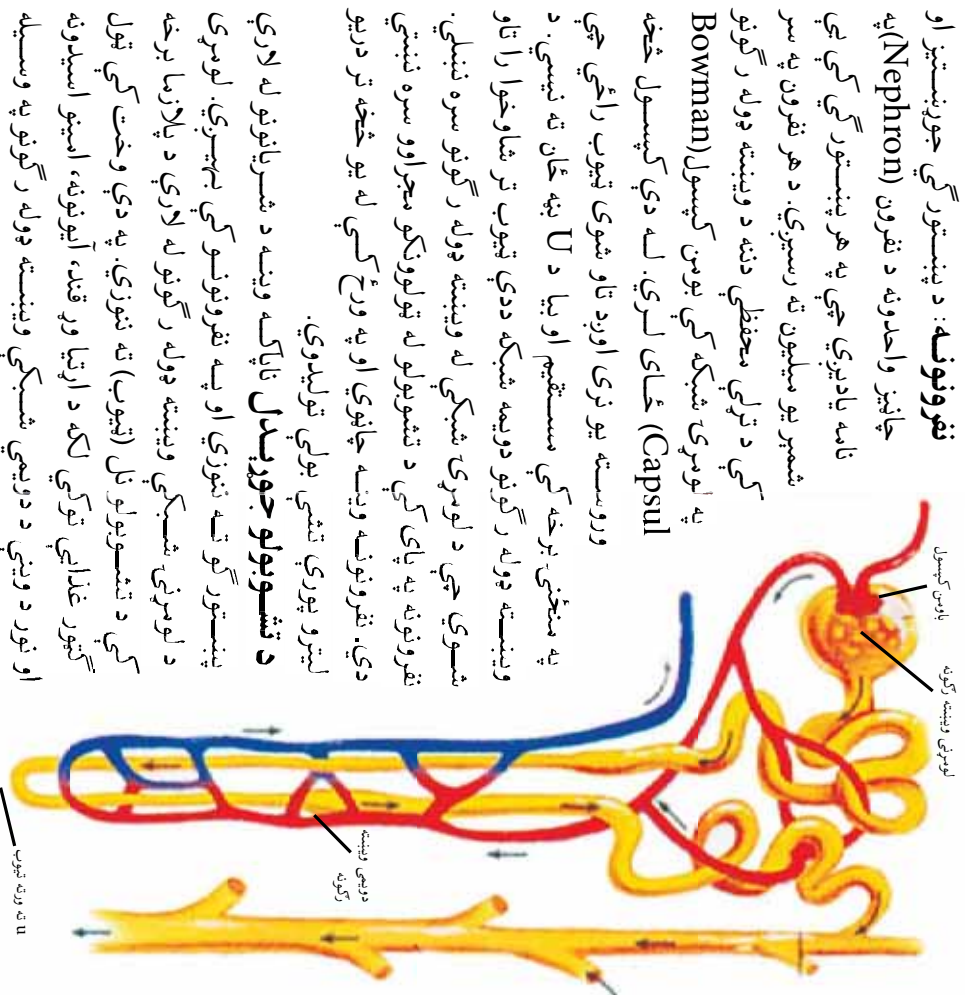 نفرونونه: د پښتورګي جوړښتيز او
چاڼيز واحدونه د نفرون (Nephron)په
نامه ياديږي چې په هر پښتورګي کې يې
شمېر يو ميليون ته رسيږي. د هر نفرون په سر
کې د تړلې محفظې دننه د وېښته ډوله رګونو
په لومړۍ شبکه کې بومن کپسول(Bowman
Capsul) ځای لري. له دې کپسول څخه
وروسته يو نری اوږد تاو شوی ټيوب راځي چې
په منځنۍ برخه کې مستقيم او بيا د U بڼه ځان ته نيسي. د
وېښته ډوله رګونو دويمه شبکه ددې ټيوب تر شاوخوا را تاو
شوې چې د لومړۍ شبکې له وېښته ډوله رګونو سره نښلي.
نفرونونه په پای کې د تشوبولو له ټولوونکو مجراوو سره نښتي
دي. نفرونونه وينه چاڼوي او په ورځ کې له يو څخه تر دريو
ليترو پورې تشې بولې توليدوي.
د تشوبولو جوړېدل ناپاکه وينه د شريانونو له لارې
پښتورګو ته ننوزي او په نفرونونو کې بهيږي. لومړی
د لومړنۍ شبکې وېښته ډوله رګونو له لارې د پلازما برخه
کې د تشوبولو نل (ټيوب) ته ننوزي. په دې وخت کې ټول
ګټور غذايي توکي لکه د اړتيا وړ قند، آيونونه، امينو اسيدونه
او نور د وينې د دويمې شبکې وېښته ډوله رګونو په وسيله
باومن کپسول
لومړنی وېښته رګونه
دويمی وېښته
رګونه
u ته ورته ټيوب